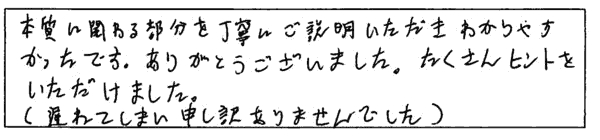 本質に関わる部分を丁寧にご説明いただきわかりやす
かったです。ありがとうございました。たくさんヒントを
いただけました。
(遅れてしまい申し訳ありませんでした)